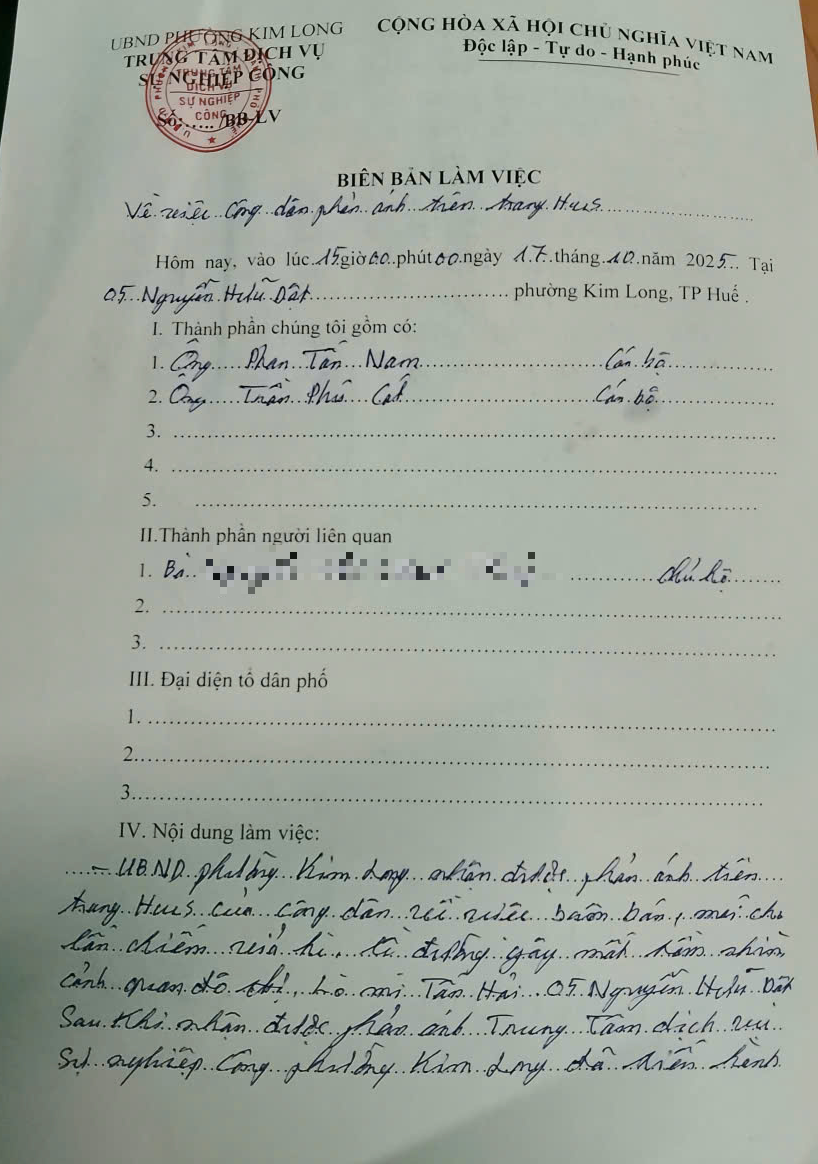 UBND PHƯỜNG KIM LONG
TRUNG TÂM DỊCH VỤ
SỰ NGHIỆP CÔNG
Số:..... /BB-LV
CỘNG HÒA XÃ HỘI CHỦ NGHĨA VIỆT NAM
Độc lập - Tự do - Hạnh phúc
TRUNG TÂM
DỊCH VỤ
SỰ NGHIỆP
CÔNG
BIÊN BẢN LÀM VIỆC
Về việc công dân phản ánh trên trang HueS
Hôm nay, vào lúc 15 giờ 00 phút 00 ngày 17 tháng 10 năm 2025 Tại
05 Nguyễn Hữu Dật phường Kim Long, TP Huế .
I. Thành phần chúng tôi gồm có:
1. Ông Phan Tấn Nam Cán bộ
2. Ông Trần Phú Cán bộ
3.
4.
5.
II.Thành phần người liên quan
1. Bà chủ hộ
2.
3.
III. Đại diện tổ dân phố
1.
2.
3.
IV. Nội dung làm việc:
- UBND phường Kim Long nhận được phản ánh trên
trang HueS của công dân về việc buôn bán,
lấn chiếm vỉa hè, đường gây mất tầm nhìn
cảnh quan đô thị, Lò mì Tấn Hải 05 Nguyễn Hữu Dật
Sau khi nhận được phản ánh Trung Tâm dịch vụ
Sự nghiệp Công phường Kim Long đã tiến hành